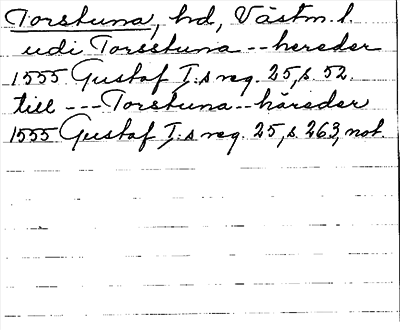 Torstuna, hd, Västm. l.
udi Torsstuna -- hereder
1555 Gustaf I:s reg. 25, s. 52.
till --- Torstuna -- häreder
1555 Gustaf I:s reg. 25, s. 263, not.